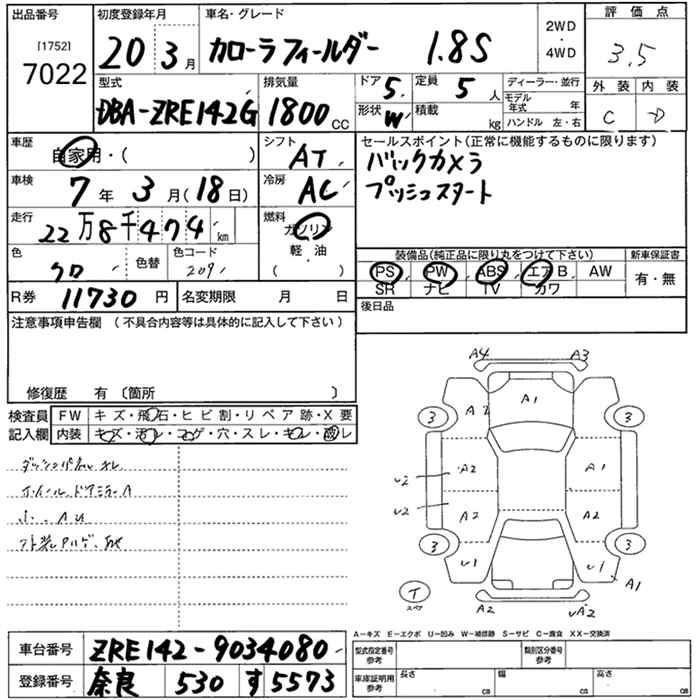 出品番号
[1752]
7022
初度登録年月
20 3月
車名・グレード
カローラフィールダー 1.8S
2WD
・
4WD
評価点
3.5
外装 内装
C D
型式
DBA-ZRE142G
排気量
1800 CC
ドア 5.
形状 W
定員 5 人
積載 kg
ディーラー・並行
モデル年式 年
ハンドル 左・右
車歴
自家用・( )
シフト
AT
車検
7年 3月(18日)
冷房
AC
走行
22万8千474 km
燃料
ガソリン
軽・油
( )
色
クロ
色替
色コード
209
R券 11730 円
名変期限 月 日
セールスポイント(正常に機能するものに限ります)
バックカメラ
プッシュスタート
装備品(純正品に限り丸をつけて下さい)
新車保証書
PS PW ABS エアB AW
SR ナビ TV カワ
有・無
後日品
注意事項申告欄 (不具合内容等は具体的に記入して下さい)
修復歴 有 〔箇所 〕
検査員
記入欄
FW キズ・飛石・ヒビ割・リペア跡・X要
内装 キズ・汚レ・コゲ・穴・スレ・キレ・破レ
A4 A3
A1
3 A2 3
U2 A2 A1
U2 A2 A2
3 U1 U1 3
A1
T
スペア
A2 A2
A-キズ E-エクボ U-凹み W-補修跡 S-サビ C-腐食 XX-交換済
車台番号 ZRE142-9034080
登録番号 奈良 530 す 5573
型式指定番号
参考
類別区分番号
参考
車庫証明用
参考
長さ cm
幅 cm
高さ cm